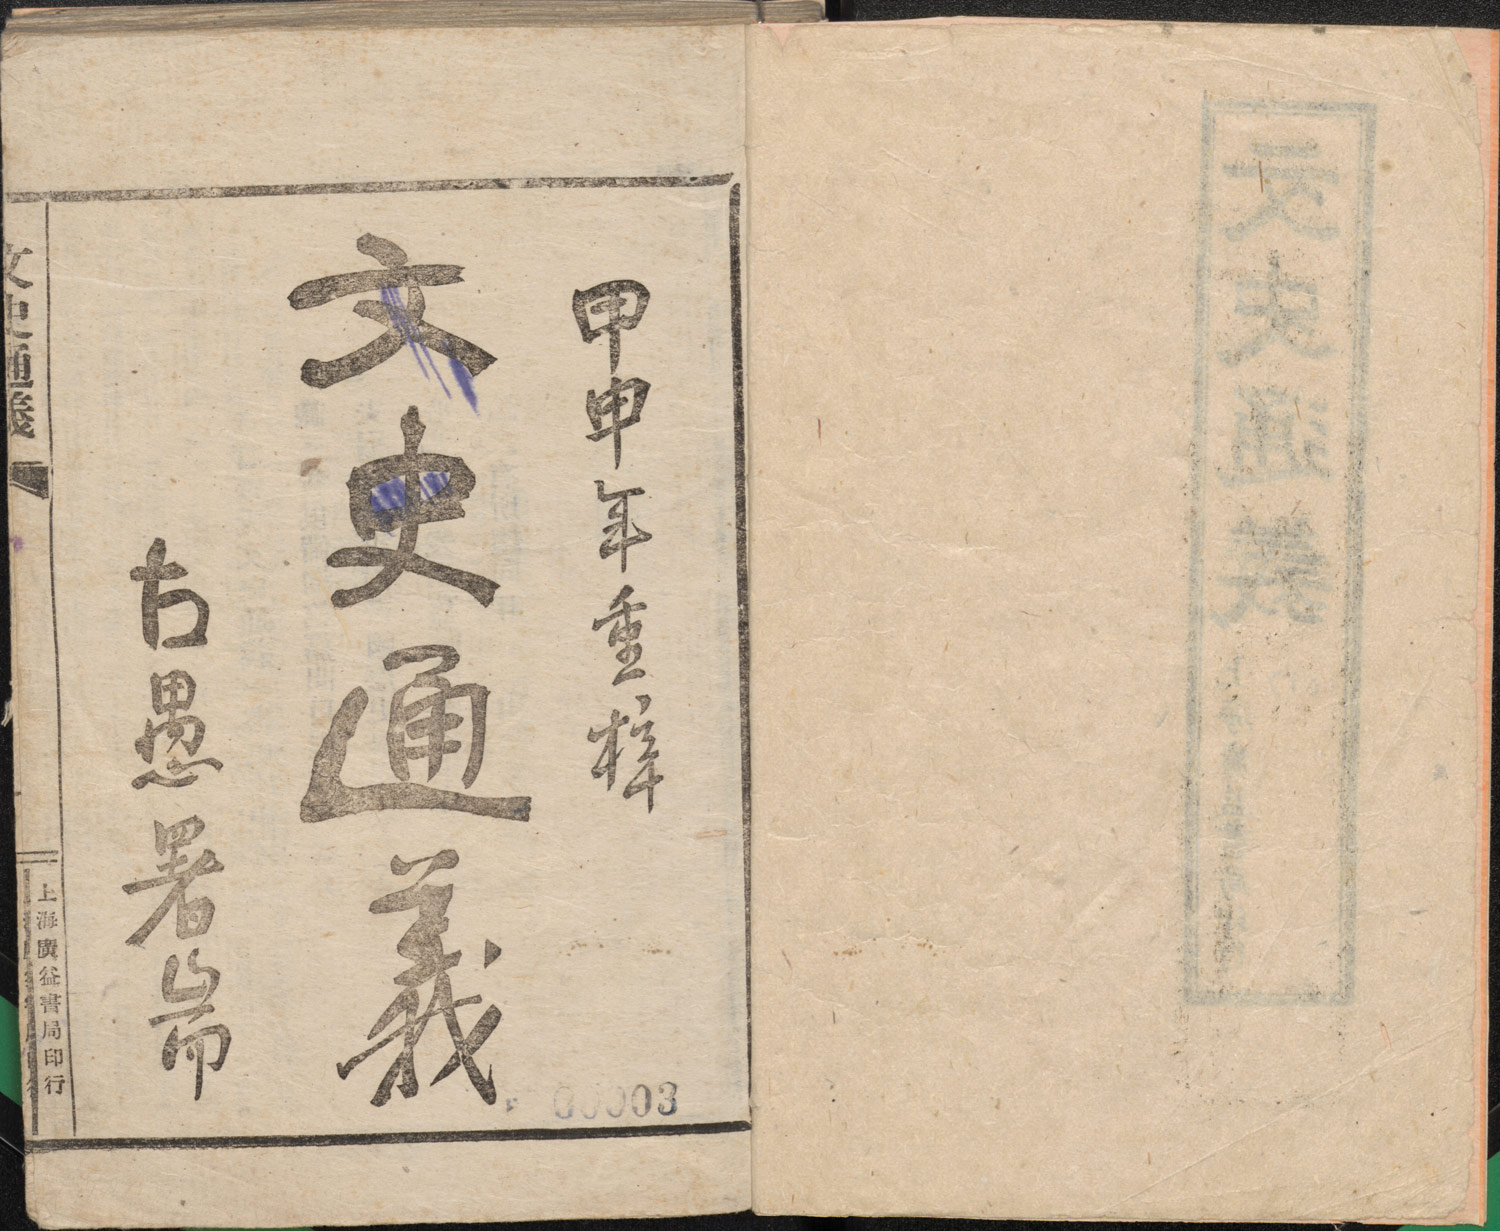 甲申年重梓
文史通義
古愚署耑
文史通義
上海廣益書局印行
00003
文史通義